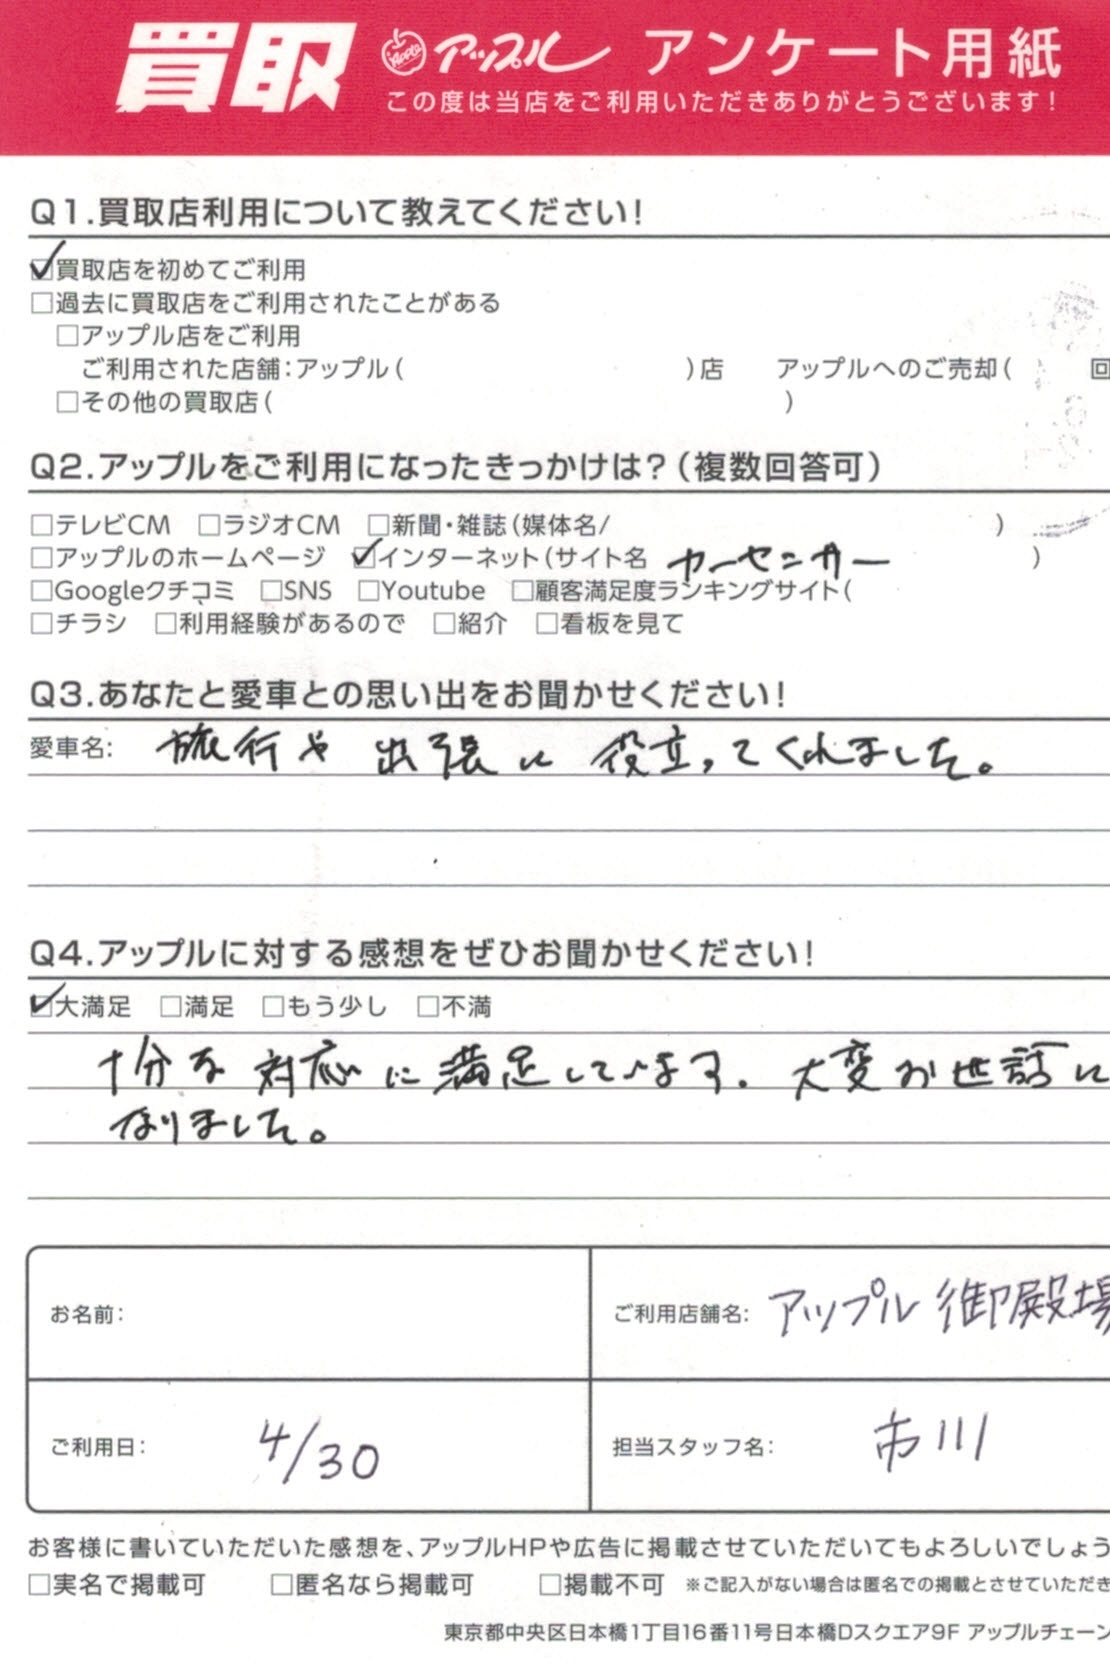 買取 Apple アップル アンケート用紙
この度は当店をご利用いただきありがとうございます!
Q1.買取店利用について教えてください!
☑買取店を初めてご利用
□過去に買取店をご利用されたことがある
□アップル店をご利用
ご利用された店舗:アップル( )店 アップルへのご売却( 回
□その他の買取店( )
Q2.アップルをご利用になったきっかけは?(複数回答可)
□テレビCM □ラジオCM □新聞・雑誌(媒体名/ )
□アップルのホームページ ☑インターネット(サイト名 カーセンサー )
□Googleクチコミ □SNS □Youtube □顧客満足度ランキングサイト(
□チラシ □利用経験があるので □紹介 □看板を見て
Q3.あなたと愛車との思い出をお聞かせください!
愛車名: 旅行や出張に役立ってくれました。
Q4.アップルに対する感想をぜひお聞かせください!
☑大満足 □満足 □もう少し □不満
十分な対応に満足しています。大変お世話に
なりました。
お名前: ご利用店舗名: アップル御殿場
ご利用日: 4/30 担当スタッフ名: 市川
お客様に書いていただいた感想を、アップルHPや広告に掲載させていただいてもよろしいでしょう
□実名で掲載可 □匿名なら掲載可 □掲載不可 ※ご記入がない場合は匿名での掲載とさせていただき
東京都中央区日本橋1丁目16番11号日本橋Dスクエア9F アップルチェーン